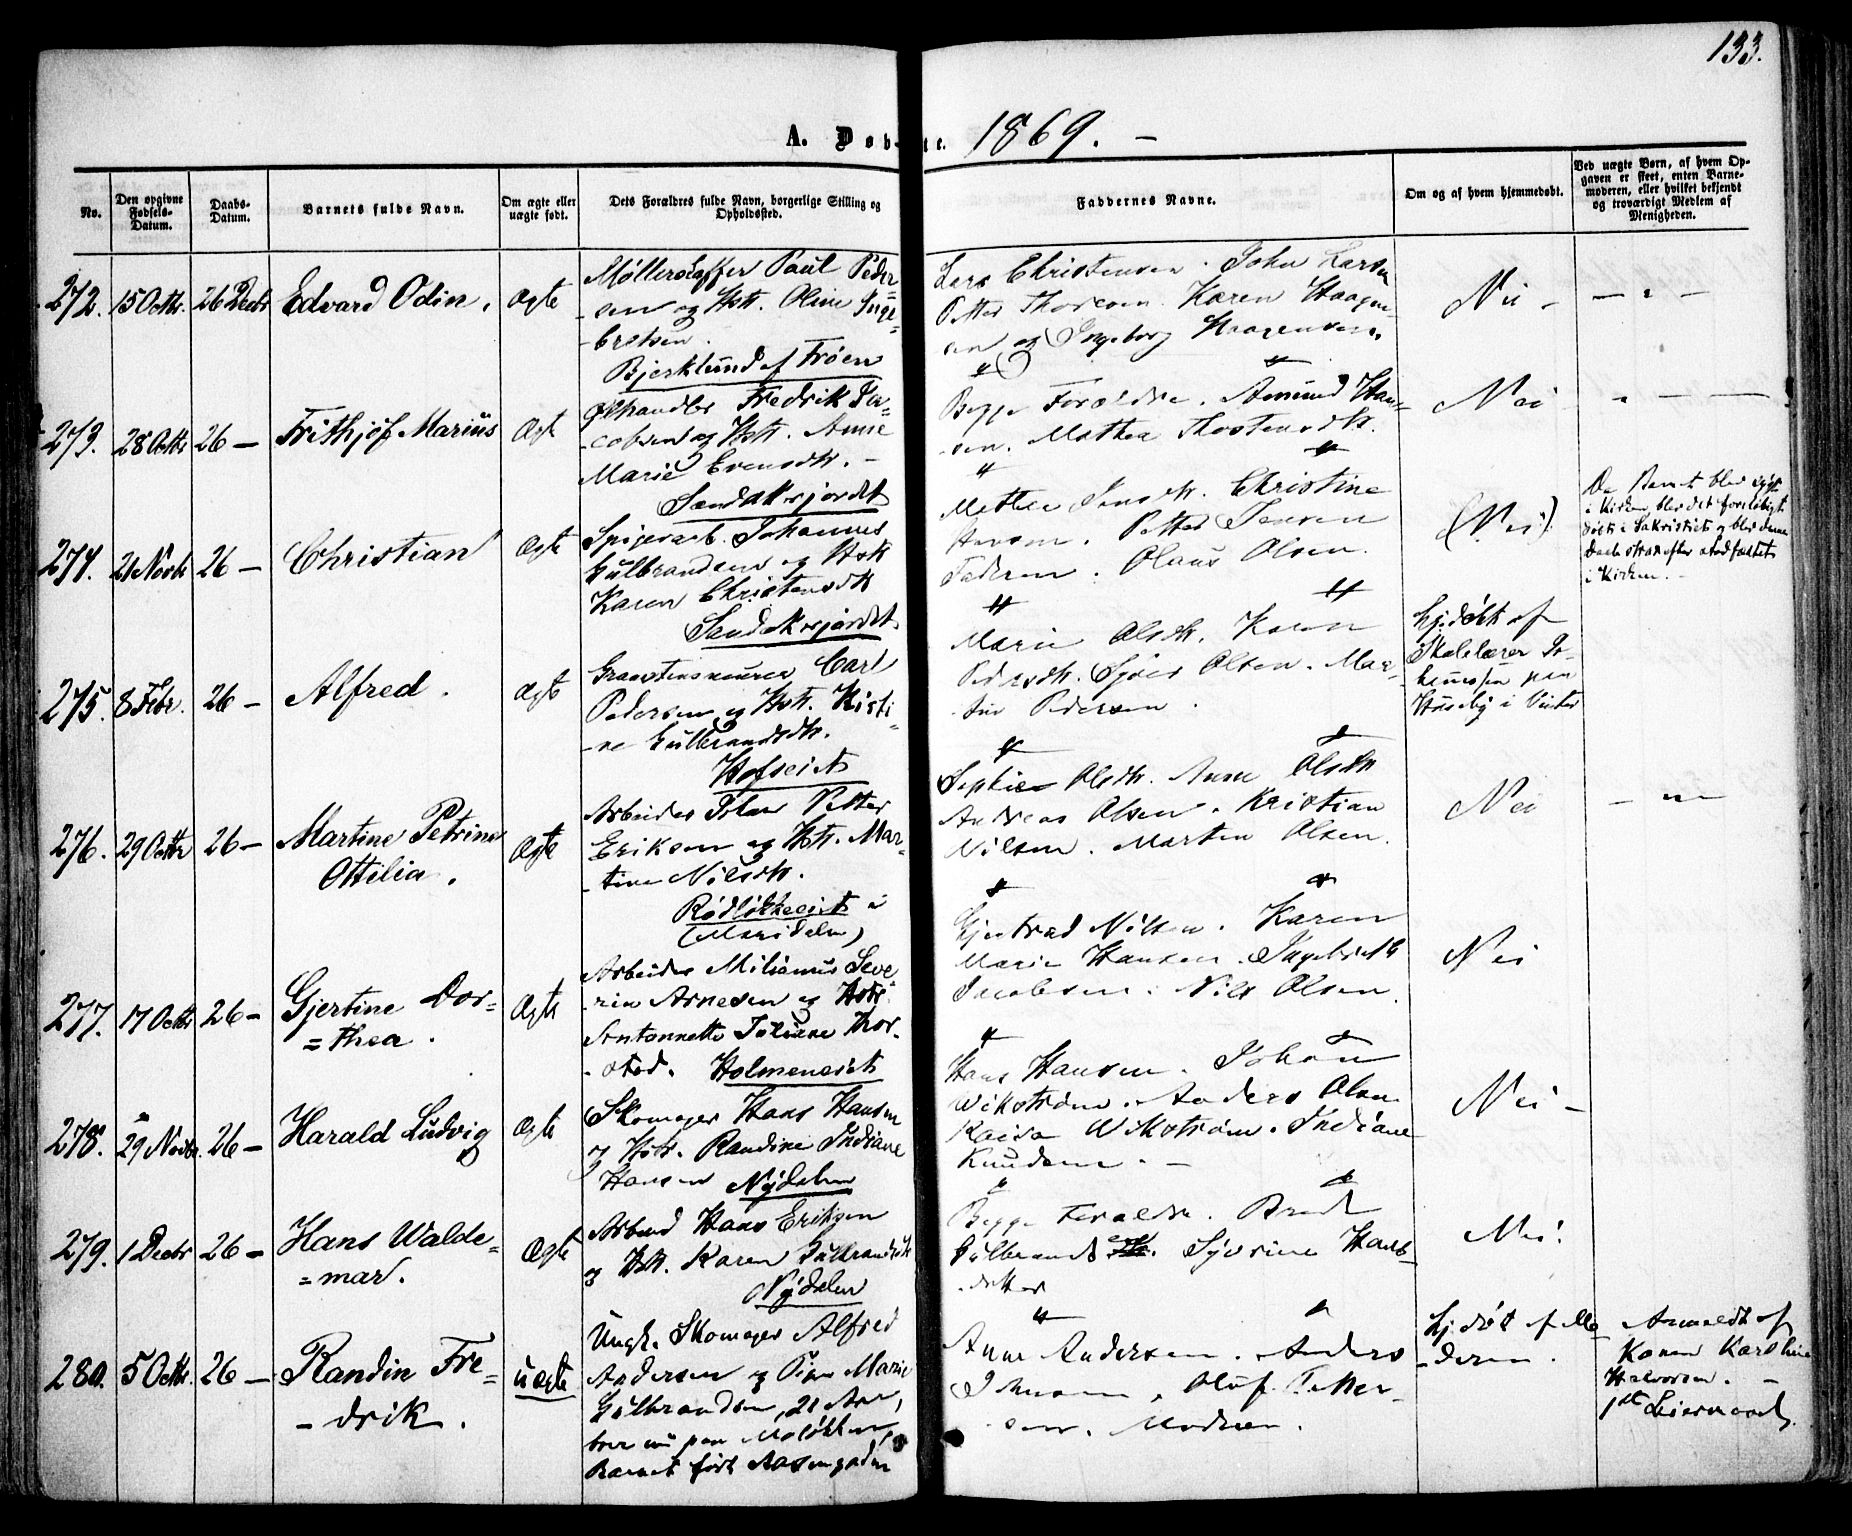 133.
A. Døbte. 1869. —
No.
Den opgivne Fødsels-Datum.
Daabs-Datum.
Barnets fulde Navn.
Om ægte eller uægte født.
Dets Forældres fulde Navn, borgerlige Stilling og Opholdssted.
Faddernes Navne.
Om og af hvem hjemmedøbt.
Ved uægte Børn, af hvem Opgaven er skeet, enten Barnemoderen, eller hvilket bekjendt og troværdigt Medlem af Menigheden.
272. 15 Octbr. 26 Decbr Edvard Odin. Ægte
Paul Peder-
sen og Hst. Oline Inge-
bretsen.
Bjerklund af Frøen
Lars Christensen. John Larsen
Petter Thoresen. Karen Haagen-
sen og Ingeborg Haagensen.
Nei — — " —
273. 28 Octbr 26 — Frithjof Marius Ægte
Ølhandler Fredrik Ja-
cobsen og Hst. Anne
Marie Evensdtr. —
Sandakerjordet
Begge Forældre. Amund Han-
sen. Mathea Thostensdtr.
Nei " — —
274. 21 Novbr 26 — Christian Ægte
Spigerarb. Johannes
Gulbrandsen og Hst
Karen Christensdtr
Sandakerjordet
Mathea Jensdtr. Christine
Petter Jensen
Faderen. Olaus Olsen.
(Nei)
Da Barnet blev sygt
i Kirken, blev det foreløbigt
døbt i Sakristiet og blev denne
Daab strax efter stadfæstet
i Kirken. —
275. 8 Febr. 26 — Alfred. Ægte
Carl
Pedersen og Hst. Kisti-
ne Gulbrandsdtr.
Hofseiet
Marie Olsdtr. Karen
Pedersdtr. Syver Olsen. Mar-
tin Pedersen.
Hjdøbt af
Skolelærer Jo-
hannesen paa
Huseby i Vinter
276. 29 Octbr 26 — Martine Petrine
Ottilia. Ægte
Arbeider Johan Petter
Eriksen og Hst. Mar-
tine Nilsdtr.
Rødløkkeeiet i
(Maridalen)
Sophie Olsdtr. Anne Olsdtr
Andreas Olsen. Kristian
Nilsen. Morten Olsen.
Nei — " —
277. 17 Octbr 26 — Gjertine Dor-
=thea. Ægte
Arbeider Milianus Seve-
rin Arnesen og Hstr.
Antonnette Juliane Thor-
stad. Holmeneiet
Gjertrud Nilsen. Karen
Marie Hansen. Ingebreth
Jacobsen. Nils Olsen.
Nei
278. 29 Novbr. 26 — Harald Ludvig Ægte
Skomager Hans Hansen
og Hstr. Randine Indiane
Hansen Nydalen
Hans Hansen. Johan
Wikstrøm. Anders Olsen
Kaisa Wikstrøm. Indiane
Knudsen. —
Nei —
279. 1 Decbr 26 — Hans Walde-
=mar. Ægte
Arbeid Hans Eriksen
og Hst. Karen Gulbrandsdtr
Nydalen
Begge Forældre. Berte
Gulbrands. Syverine Hans-
datter
Nei.
280. 5 Octbr. 26 — Randin Fre-
— drik. uægte
Ungk. Skomager Alfred
Andersen og Pige Marie
Gulbrandsen, 21 Aar,
boer nu paa Moløkken,
Barnet født Aasengaden
Anne Andersen. Anders
Johnsen. Oluf Petter-
sen. Modren.
Hjdøbt af Mo-
deren.
Anmeldt af
Karen Karoline
Halvorsen. —
1ste Leiermaal.